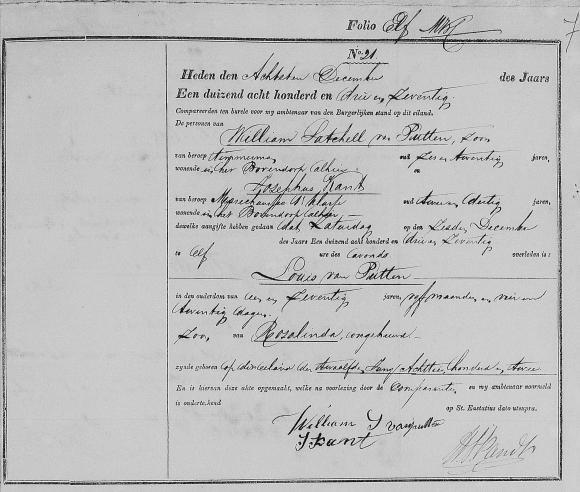 Folio Elf
7
No. 21.
Heden den Achtsten December des Jaars
Een duizend acht honderd en drie en Zeventig.
Compareerden ten burele voor mij ambtenaar van den Burgerlijken stand op dit eiland.
De personen van
William Satchell van Putten, Zoon
van beroep oud Zes en twentig jaren,
wonende in het Bovendorp alhier en
Josephus Kant
van beroep Marechaussee 1e klasse oud twee en dertig jaren,
wonende in het Bovendorp alhier
dewelke aangifte hebben gedaan dat Zaturdag op den Zesden December
des Jaars Een duizend acht honderd en drie en Zeventig
te Elf ure des avonds overleden is:
Louis van Putten
in den ouderdom van een en Zeventig jaren, vijf maanden en vier en
twentig dagen.
Zoon van Rosalinda, ongehuwd
zynde geboren op dit eiland den twaalfden Juny Achttien honderd en twee
En is hiervan deze akte opgemaakt, welke na voorlezing door de Comparanten en my ambtenaar voormeld
is onderteekend
op St. Eustatius dato utsupra.
William S van putten
J Kant